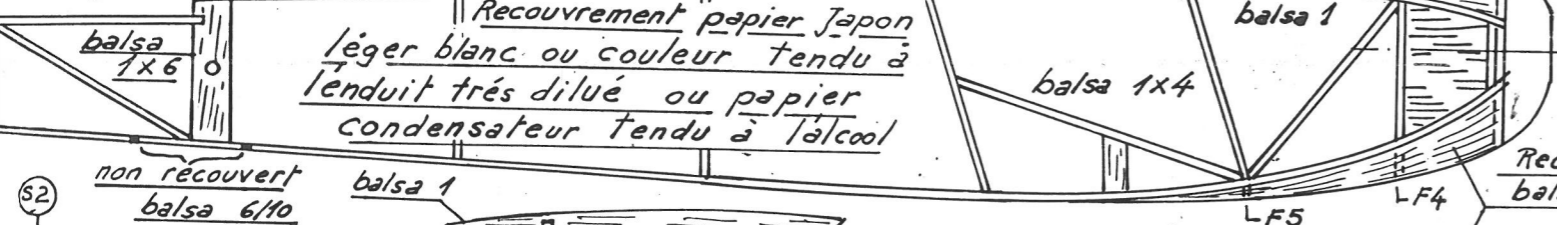 Recouvrement papier Japon
léger blanc ou couleur tendu à
l'enduit trés dilué ou papier
condensateur tendu à l'alcool
balsa
1x6
balsa 1
balsa 1x4
non recouvert
balsa 6/10
balsa 1
S2
F5
F4